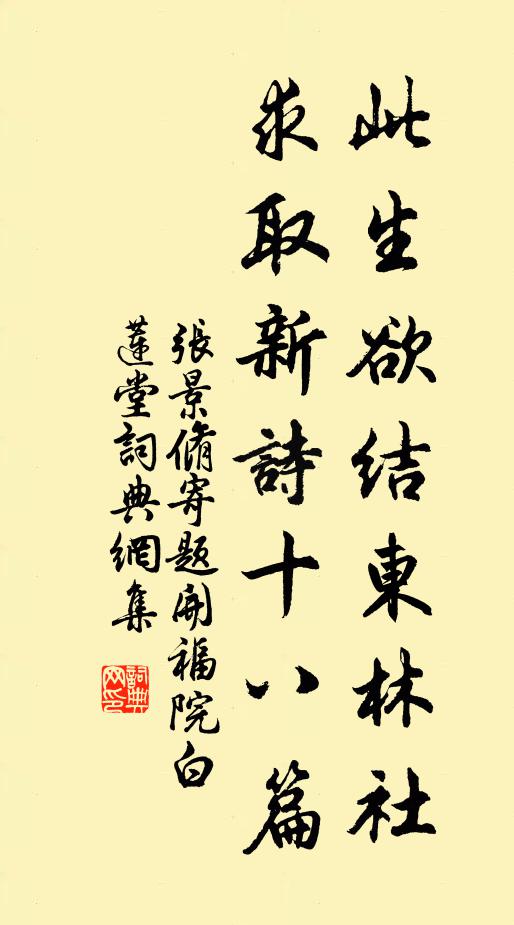 此生欲结東林社
求取新詩十八篇
張景脩寄題開福院白
蓮堂詞典網集
詞典
网印